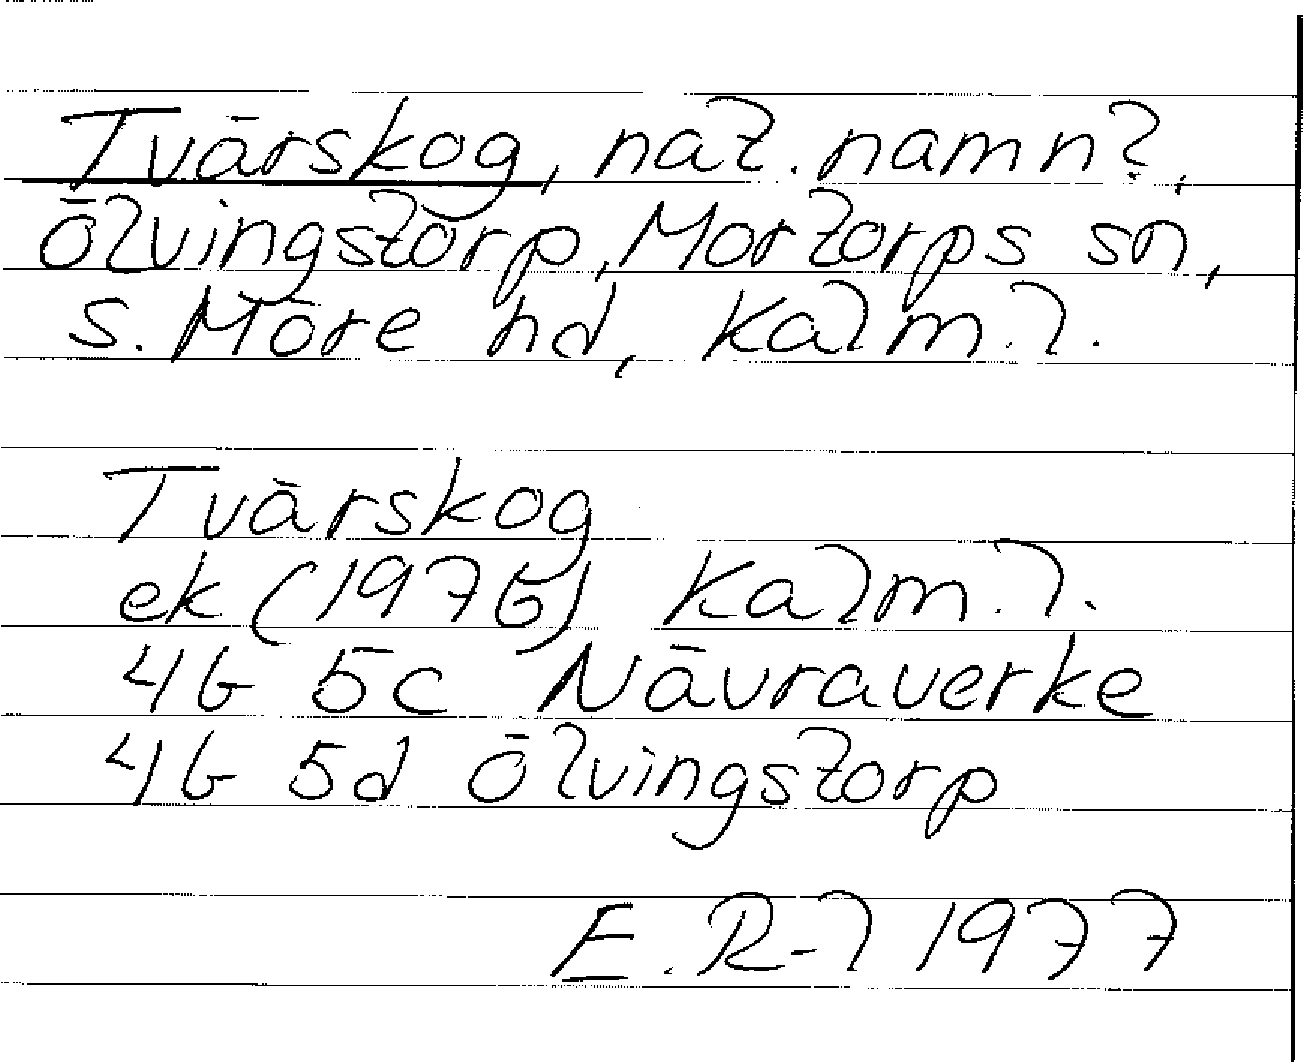 Tvärskog, nat. namn?,
Ölvingstorp, Mortorps sn,
S. Möre hd, Kalm. l.
Tvärskog
ek (1976) Kalm. l.
4G 5c Nävraverke
4G 5d Ölvingstorp
E. R-l 1977